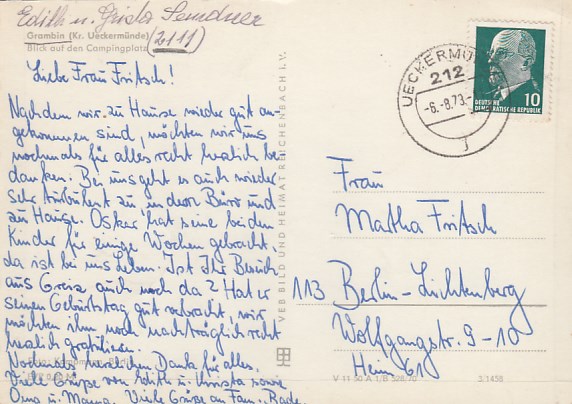 Edith u. Semdner
Grambin (Kr. Ueckermünde)
(2111)
Blick auf den Campingplatz
Liebe Frau Fritsch!
Nachdem wir zu Hause wieder gut an-
gekommen sind, möchten wir uns
nochmals für alles recht herzlich be-
danken. Bei uns geht es auch wieder
sehr turbulent zu, in dem Büro und
zu Hause. Oskar hat seine beiden
Kinder für einige Wochen gebracht,
da ist bei uns Leben. Ist Ihr Besuch
aus Greiz auch noch da? Hat er
seinen Geburtstag gut verbracht, wir
möchten ihm noch nachträglich recht
herzlich gratulieren.
Nochmals herzlichen Dank für alles.
Viele Grüße von Edith u. sowie
Oma u. Mama. Viele Grüße an Fam. Bade.
VEB BILD UND HEIMAT REICHENBACH i. V.
UECKERMÜ
212
-6.-8.73.-
j
DEUTSCHE
DEMOKRATISCHE REPUBLIK
10
Frau
Martha Fritsch
113 Berlin-Lichtenberg
Wolfgangstr. 9-10
Heim 61
V 11 50 A 1/B 526/70
3/1458